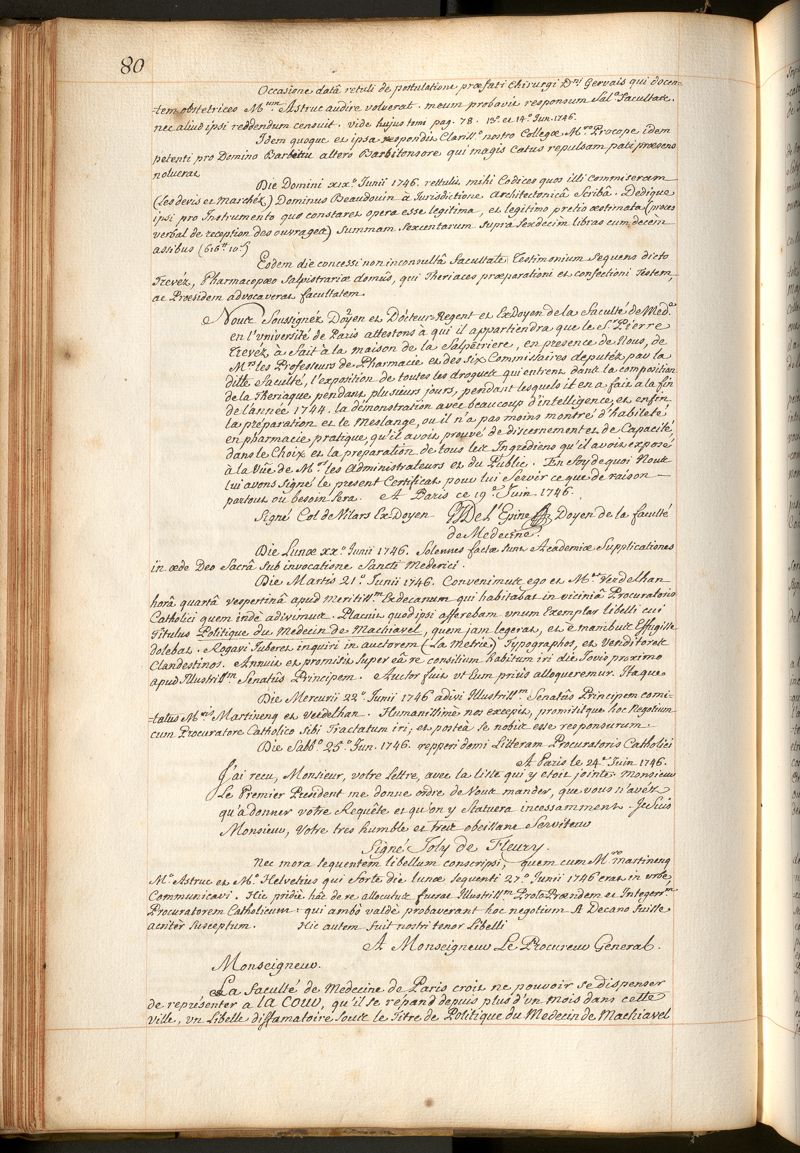 80
Occasione datâ retuli de postulatione præfati Chirurgi D.ni Gervais qui docen-
=tem obstetrices M.um Astruc audire voluerat. meum probavit responsum Sal.a Facultate.
nec aliud ipsi reddendum censuit. vide hujus tomi pag. 78. 13.a et 14.a Jun. 1746.
Idem quoque et ipsa respondit Clariss.o nostro Collegæ M.ro Procope idem
petenti pro Domino Barbettu altero Barbitonsore qui magis catus repulsam pati præsens
noluerat
Die Domini XIX.a Junii 1746. rettulit mihi Codices quos illi commiseram
(Les devis et marchéz) Dominus Beaudouin à Jurisdictione architectonicâ Scriba. Dedique
ipsi pro Instrumento quo constaret opera esse legitima, et legitimo pretio æstimata (procés
verbal de reception des ouvraget) Summam Sexcentarum supra Sexdecim libras cum decem
assibus (616.tt 10.s)
Eodem die concessi non inconsultâ Facultate Testimonium Sequens dicto
Trevéz, Pharmacopæo Salpistrariæ domûs, qui Theriaces præparationi et confectioni Testem,
ac Præsidem advocaverat facultatem.
Nous Soussignéz Doyen et Docteur-Regent et ExDoyen de la Faculté de Med.e
en l'Université de Paris attestons à qui il appartiendra que le S.r Pierre
Trevéz, à fait à la maison de la Salpétriere, en presence de Nous, de
M.rs les Professeurs de Pharmacie et des six Commissaires deputéz par la
ditte faculté, l'exposition de toutes les drogues qui entrent dans la composition
de la Theriaque pendant plusieurs jours, pendant lesquels il en a fait a la fin
de l'année 1744. la démonstration avec beaucoup d'intelligence, et enfin
la préparation et le Meslange, ou il n'a pas moins montré d'habileté
en pharmacie pratique, qu'il avoit prouvé de discernement et de Capacité
dans le Choix et la preparation de tous les Ingrediens qu'il avoit exposé
à la Vüe de M.rs les Administrateurs et du Public. En foy de quoi Nous
lui avons Signé le present Certificat pour lui Servir ce que de raison
partout ou besoin sera. A Paris ce 19.e Juin 1746.
Signé Col de Vilars ExDoyen GJDe L'Epine Doyen de la faculté
de Medecine.
Die Lunæ XX.a Junii 1746. Solennes factæ sunt Academiæ Supplicationes
in æde Deo Sacrâ sub invocatione Sancti Mederici.
Die Martis 21.a Junii 1746. Convenimus ego et M.er Verdelhan
horâ quartâ vespertinâ apud meritiss.m Exdecanum qui habitabat in viciniâ Procuratoris
Catholici quem indè adivimus. Placuit quod ipsi afferebam unum Exemplar libelli cui
Titulus Politique du Medecin de Machiavel, quem jam legerat, et è manibus Effugisse
dolebat. Rogavi Juberet inquiri in auctorem (La Metrie) Typographos, et Venditores
Clandestinos. Annuit et promisit Super eâ re consilium habitum iri die Jovis proximo
apud Illustriss.m Senatûs Principem. Auctor fuit ut Eum priùs alloqueremur. Itaque
Die Mercurii 22.a Junii 1746 adivi Illustriss.m Senatûs Principem comi-
=tatus M.ris Martinenq et Verdelhan. Humanissimè nos excepit, promisitque hoc Negotium
cum Procuratore Catholico Sibi Tractatum iri, et posteà se nobis esse responsurum.
Die Sabb.o 25.a Jun. 1746. repperi domi Litteram Procuratoris Catholici
A Paris le 24.e Juin 1746.
J'ai recu, Monsieur, votre lettre, avec la liste qui y etoit jointe. Monsieur
Le Premier President me donne ordre de Vous mander, que vous n'avéz
qu'a donner votre Requête et qu'on y Statuera incessamment. Je Suis
Monsieur, Votre tres humble et tres obeissant Serviteur
Signé Joly de Fleury.
Nec mora sequentem libellum conscripsi, quem cum M.ro Martinenq
M.o Astruc et M.o Helvetius qui forte die lunæ Sequenti 27.a Junii 1746 erat in urbe,
Communicavi. Hic pridiè hâc de re allocutus fuerat Illustriss.m ProtoPræsidem et Integerr.m
Procuratorem Catholicum. qui ambò valdè probaverant hoc negotium A Decano fuisse
acritèr Susceptum. Hic autem fuit nostri tenor Libelli
A Monseigneur Le Procureur General.
Monseigneur.
La Faculté de Medecine de Paris croit ne pouvoir se dispenser
de représenter a LA COUR, qu'il se répand depuis plus d'un mois dans cette
Ville, un Libelle diffamatoire Sous le Titre de Politique du Medecin de Machiavel